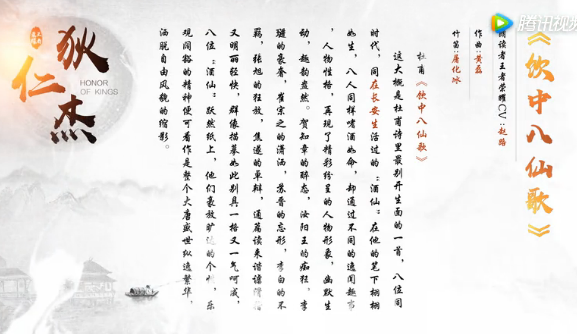 腾讯视频
《饮中八仙歌》
朗读者王者荣耀CV:赵路
作曲:黄磊
竹笛:屠化冰
杜甫《饮中八仙歌》
这大概是杜甫诗里最别开生面的一首，八位同
时代，同在长安生活过的“酒仙”在他的笔下栩栩
如生，八人同样嗜酒如命，却通过不同的逸闻趣事
，人物性格，再现了精彩纷呈的人物形象，幽默生
动，趣韵盎然。贺知章的醉态，汝阳王的痴狂，李
琎的豪奢，崔宗之的潇洒，苏晋的忘形，李白的不
羁，张旭的狂放，焦遂的卓辩，通篇读来谐谑滑稽
又明丽轻快，群像描摹如此别具一格又一气呵成，
八位“酒仙”跃然纸上，他们豪放旷达的个性，乐
观阔裕的精神便可看作是整个大唐盛世纵逸繁华，
洒脱自由风貌的缩影。
狄仁杰
王者荣耀
HONOR
OF KINGS